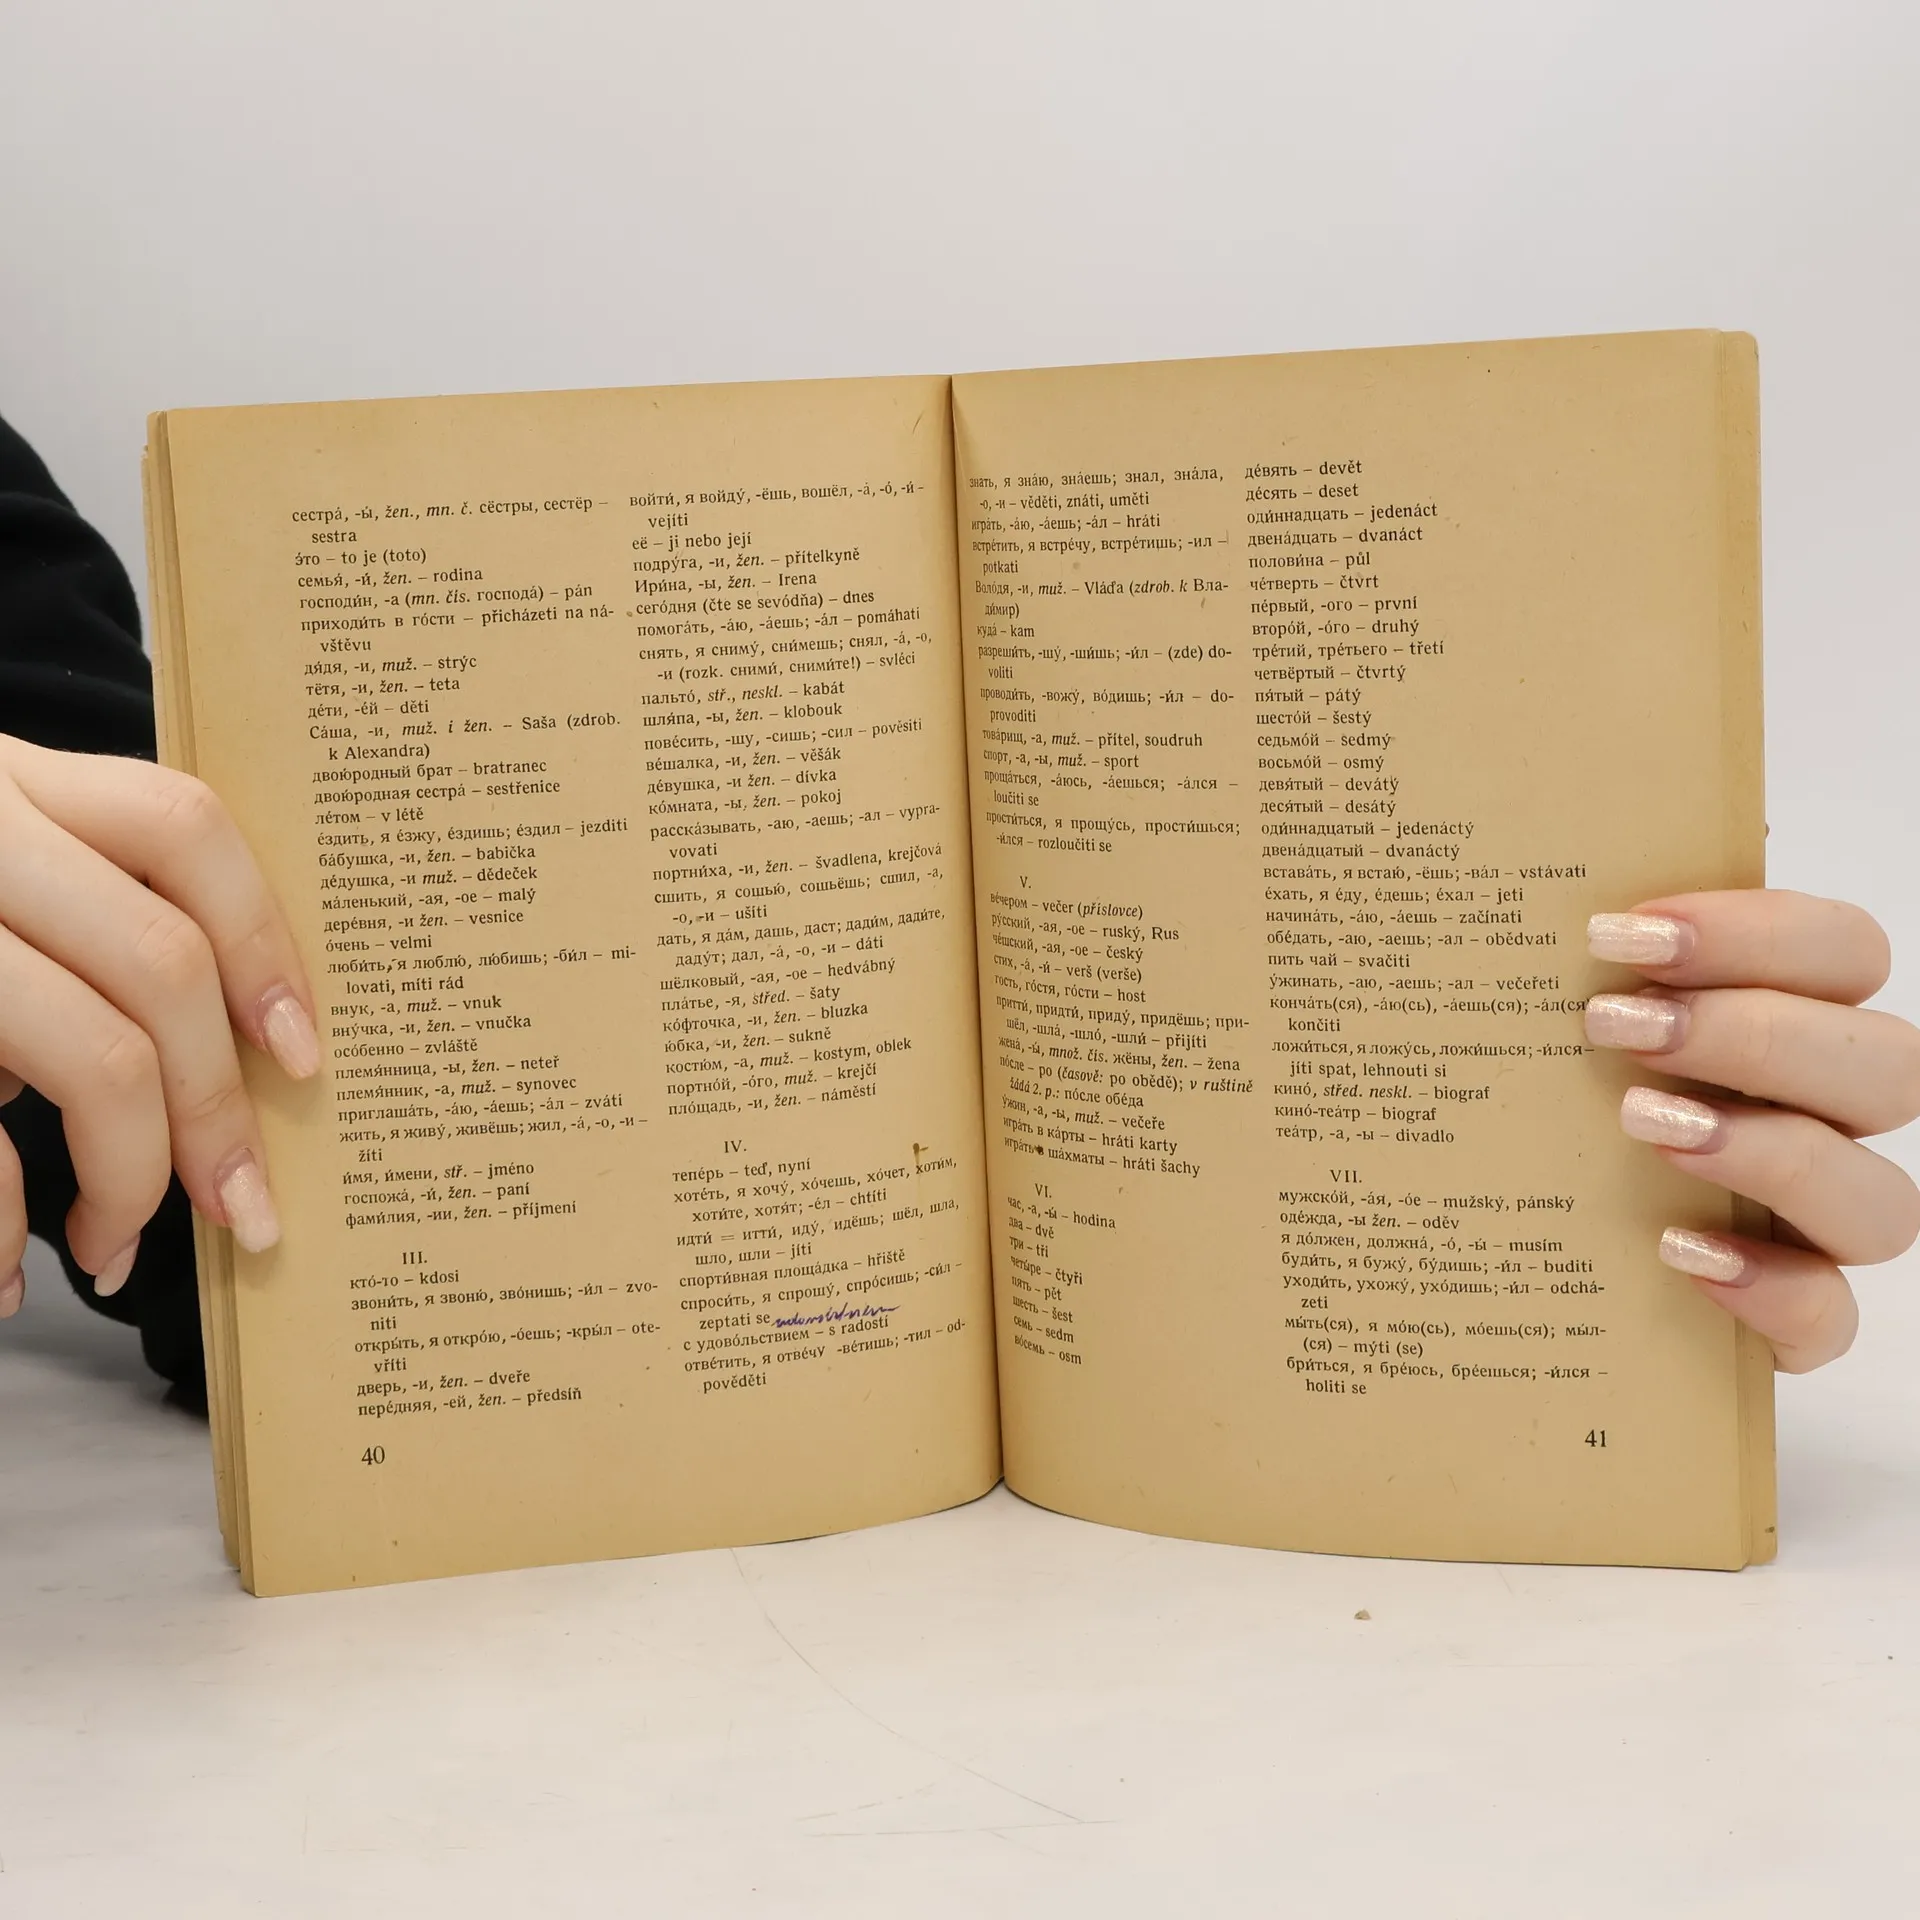 сестра́, -ы́, žen., mn. č. сёстры, сестёр –
sestra
э́то – to je (toto)
семья́, -и́, žen. – rodina
господи́н, -а (mn. čís. господа́) – pán
приходи́ть в го́сти – přicházeti na ná-
vštěvu
дя́дя, -и, muž. – strýc
тётя, -и, žen. – teta
де́ти, -е́й – děti
Са́ша, -и, muž. i žen. – Saša (zdrob.
k Alexandra)
двою́родный брат – bratranec
двою́родная сестра́ – sestřenice
ле́том – v létě
е́здить, я е́зжу, е́здишь; е́здил – jezditi
ба́бушка, -и, žen. – babička
де́душка, -и muž. – dědeček
ма́ленький, -ая, -ое – malý
дере́вня, -и žen. – vesnice
о́чень – velmi
люби́ть, я люблю́, лю́бишь; -би́л – mi-
lovati, míti rád
внук, -а, muž. – vnuk
вну́чка, -и, žen. – vnučka
осо́бенно – zvláště
племя́нница, -ы, žen. – neteř
племя́нник, -а, muž. – synovec
приглаша́ть, -а́ю, -а́ешь; -а́л – zváti
жить, я живу́, живёшь; жил, -а́, -о, -и –
žíti
и́мя, и́мени, stř. – jméno
госпожа́, -и́, žen. – paní
фами́лия, -ии, žen. – příjmení
III.
кто́-то – kdosi
звони́ть, я звоню́, звони́шь; -и́л – zvo-
niti
откры́ть, я откро́ю, -о́ешь; -кры́л – ote-
vříti
дверь, -и, žen. – dveře
пере́дняя, -ей, žen. – předsíň
40
войти́, я войду́, -ёшь, вошёл, -а́, -о́, -и́ –
vejíti
её – ji nebo její
подру́га, -и, žen. – přítelkyně
Ири́на, -ы, žen. – Irena
сего́дня (čte se sevódňa) – dnes
помога́ть, -а́ю, -а́ешь; -а́л – pomáhati
снять, я сниму́, сни́мешь; снял, -а́, -о,
-и (rozk. сними́, сними́те!) – svléci
пальто́, stř., neskl. – kabát
шля́па, -ы, žen. – klobouk
пове́сить, -шу, -сишь; -сил – pověsiti
ве́шалка, -и, žen. – věšák
де́вушка, -и žen. – dívka
ко́мната, -ы, žen. – pokoj
расска́зывать, -аю, -аешь; -ал – vypra-
vovati
портни́ха, -и, žen. – švadlena, krejčová
сшить, я сошью́, сошьёшь; сшил, -а,
-о, -и – ušíti
дать, я да́м, дашь, даст; дади́м, дади́те,
даду́т; дал, -а́, -о, -и – dáti
шёлковый, -ая, -ое – hedvábný
пла́тье, -я, střed. – šaty
ко́фточка, -и, žen. – bluzka
ю́бка, -и, žen. – sukně
костю́м, -а, muž. – kostym, oblek
портно́й, -о́го, muž. – krejčí
пло́щадь, -и, žen. – náměstí
IV.
тепе́рь – teď, nyní
хоте́ть, я хочу́, хо́чешь, хо́чет, хоти́м,
хоти́те, хотя́т; -е́л – chtíti
идти́ = итти́, иду́, идёшь; шёл, шла,
шло, шли – jíti
спорти́вная площа́дка – hřiště
спроси́ть, я спрошу́, спро́сишь; -си́л –
zeptati se
с удово́льствием – s radostí
отве́тить, я отве́чу -ве́тишь; -тил – od-
pověděti
знать, я зна́ю, зна́ешь; знал, зна́ла,
-о, -и – věděti, znáti, uměti
игра́ть, -а́ю, -а́ешь; -а́л – hráti
встре́тить, я встре́чу, встре́тишь; -ил –
potkati
Воло́дя, -и, muž. – Vláďa (zdrob. k Вла-
ди́мир)
куда́ – kam
разреши́ть, -шу́, -ши́шь; -и́л – (zde) do-
voliti
проводи́ть, -вожу́, во́дишь; -и́л – do-
provoditi
това́рищ, -а, muž. – přítel, soudruh
спорт, -а, -ы, muž. – sport
проща́ться, -а́юсь, -а́ешься; -а́лся –
loučiti se
прости́ться, я прощу́сь, прости́шься;
-и́лся – rozloučiti se
V.
ве́чером – večer (příslovce)
ру́сский, -ая, -ое – ruský, Rus
че́шский, -ая, -ое – český
стих, -а́, -и́ – verš (verše)
гость, го́стя, го́сти – host
притти́, придти́, приду́, придёшь; при-
шёл, -шла́, -шло́, -шли́ – přijíti
жена́, -ы́, množ. čís. жёны, žen. – žena
по́сле – po (časově: po obědě); v ruštině
žádá 2. p.: по́сле обе́да
у́жин, -а, -ы, muž. – večeře
игра́ть в ка́рты – hráti karty
игра́ть в ша́хматы – hráti šachy
VI.
час, -а, -ы́ – hodina
два – dvě
три – tři
четы́ре – čtyři
пять – pět
шесть – šest
семь – sedm
во́семь – osm
де́вять – devět
де́сять – deset
оди́ннадцать – jedenáct
двена́дцать – dvanáct
полови́на – půl
че́тверть – čtvrt
пе́рвый, -ого – první
второ́й, -о́го – druhý
тре́тий, тре́тьего – třetí
четвёртый – čtvrtý
пя́тый – pátý
шесто́й – šestý
седьмо́й – sedmý
восьмо́й – osmý
девя́тый – devátý
деся́тый – desátý
оди́ннадцатый – jedenáctý
двена́дцатый – dvanáctý
встава́ть, я встаю́, -ёшь; -ва́л – vstávati
е́хать, я е́ду, е́дешь; е́хал – jeti
начина́ть, -а́ю, -а́ешь – začínati
обе́дать, -аю, -аешь; -ал – obědvati
пить чай – svačiti
у́жинать, -аю, -аешь; -ал – večeřeti
конча́ть(ся), -а́ю(сь), -а́ешь(ся); -а́л(ся
končiti
ложи́ться, я ложу́сь, ложи́шься; -и́лся –
jíti spat, lehnouti si
кино́, střed. neskl. – biograf
кино́-теа́тр – biograf
теа́тр, -а, -ы – divadlo
VII.
мужско́й, -а́я, -о́е – mužský, pánský
оде́жда, -ы žen. – oděv
я до́лжен, должна́, -о́, -ы́ – musím
буди́ть, я бужу́, бу́дишь; -и́л – buditi
уходи́ть, ухожу́, ухо́дишь; -и́л – odchá-
zeti
мы́ть(ся), я мо́ю(сь), мо́ешь(ся); мы́л-
(ся) – mýti (se)
бри́ться, я бре́юсь, бре́ешься; -и́лся –
holiti se
41